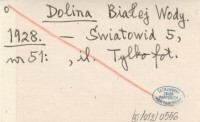 Dolina Białej Wody.
1928. — Światowid 5,
nr 51: , il. Tylko fot.